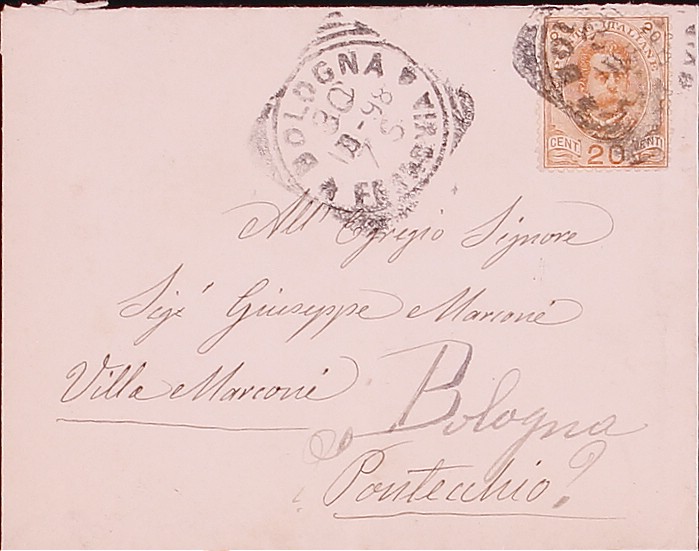 BOLOGNA
98
POSTE ITALIANE
20 20
CENT. 20 VENTI
All' Egregio Signore
Sigr Giuseppe Marconi
Villa Marconi
Bologna
Pontecchio?